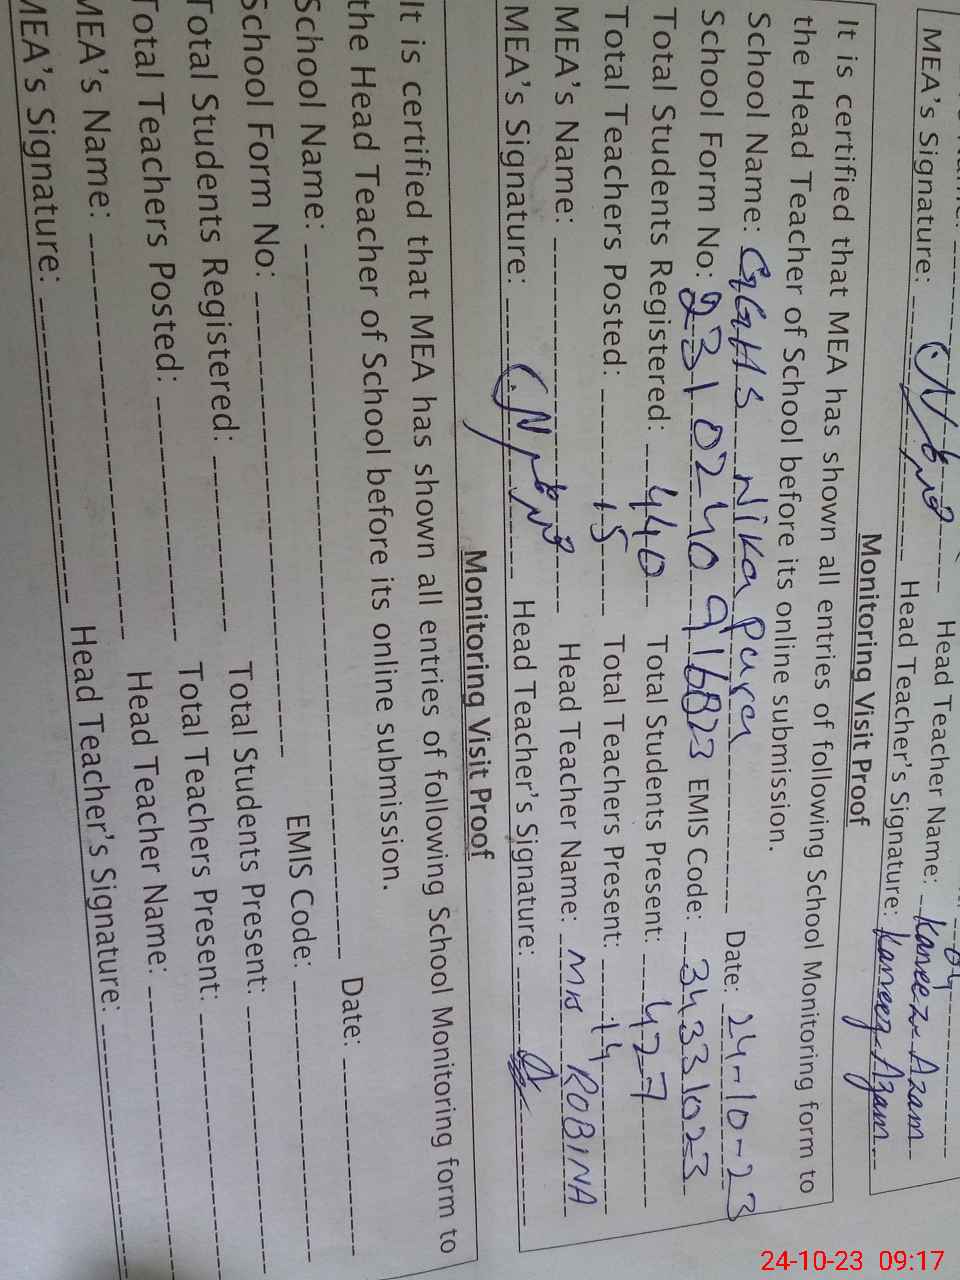 MEA's Signature: Head Teacher Name: Kaneez Azam
Head Teacher's Signature: Kaneez Azam
Monitoring Visit Proof
It is certified that MEA has shown all entries of following School Monitoring form to
the Head Teacher of School before its online submission.
School Name: GGHS Nika Pura Date: 24-10-23
School Form No: 2310240916823 EMIS Code: 34331023
Total Students Registered: 440 Total Students Present: 427
Total Teachers Posted: 15 Total Teachers Present: 14
MEA's Name: Head Teacher Name: Mrs ROBINA
MEA's Signature: Head Teacher's Signature:
Monitoring Visit Proof
It is certified that MEA has shown all entries of following School Monitoring form to
the Head Teacher of School before its online submission.
School Name: Date:
School Form No: EMIS Code:
Total Students Registered: Total Students Present:
Total Teachers Posted: Total Teachers Present:
MEA's Name: Head Teacher Name:
MEA's Signature: Head Teacher's Signature:
24-10-23 09:17